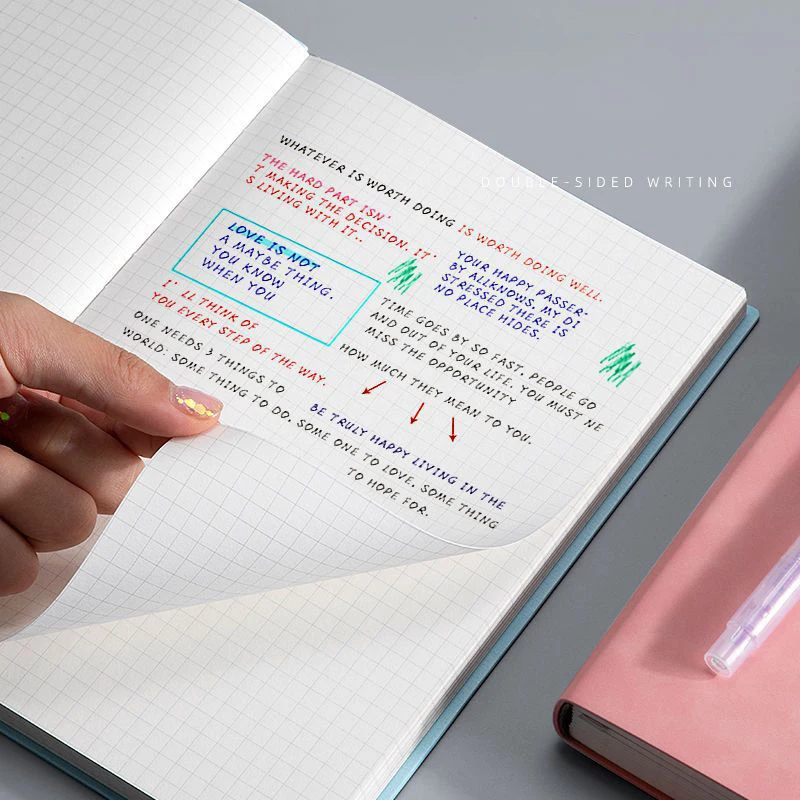 WHATEVER IS WORTH DOING IS WORTH DOING WELL.
THE HARD PART ISN'
T MAKING THE DECISION. IT'
S LIVING WITH IT..
DOUBLE-SIDED WRITING
LOVE IS NOT
A MAYBE THING.
YOU KNOW
WHEN YOU
YOUR HAPPY PASSER-
BY ALLKNOWS, MY DI
STRESSED THERE IS
NO PLACE HIDES.
I' LL THINK OF
YOU EVERY STEP OF THE WAY.
TIME GOES BY SO FAST, PEOPLE GO
AND OUT OF YOUR LIFE. YOU MUST NE
MISS THE OPPORTUNITY
HOW MUCH THEY MEAN TO YOU.
ONE NEEDS 3 THINGS TO
BE TRULY HAPPY LIVING IN THE
WORLD: SOME THING TO DO, SOME ONE TO LOVE, SOME THING
TO HOPE FOR.